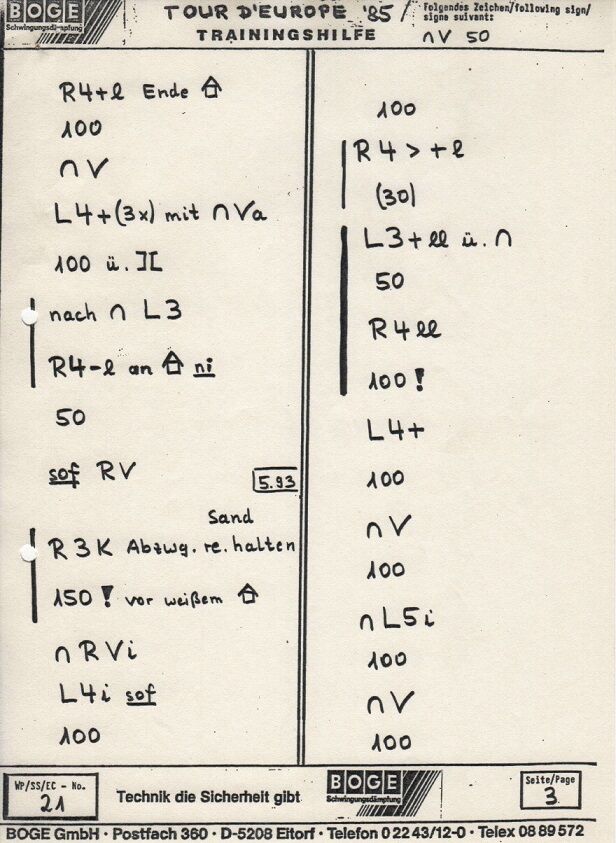 BOGE
Schwingungsdämpfung
TOUR D'EUROPE '85
TRAININGSHILFE
Folgendes Zeichen/following sign/
signe suivant:
∩V 50
R4+l Ende ⌂
100
∩V
L4+(3x) mit ∩Va
100 ü. ][
nach ∩ L3
R4-l an ⌂ ni
50
sof RV
5.93
Sand
R3K Abzwg. re. halten
150 ! vor weißem ⌂
∩RVi
L4i sof
100
100
R4>+l
(30)
L3+ll ü. ∩
50
R4ll
100!
L4+
100
∩V
100
∩L5i
100
∩V
100
WP/SS/EC - No.
21
Technik die Sicherheit gibt
BOGE
Schwingungsdämpfung
Seite/Page
3
BOGE GmbH · Postfach 360 · D-5208 Eitorf · Telefon 0 22 43/12-0 · Telex 08 89 572